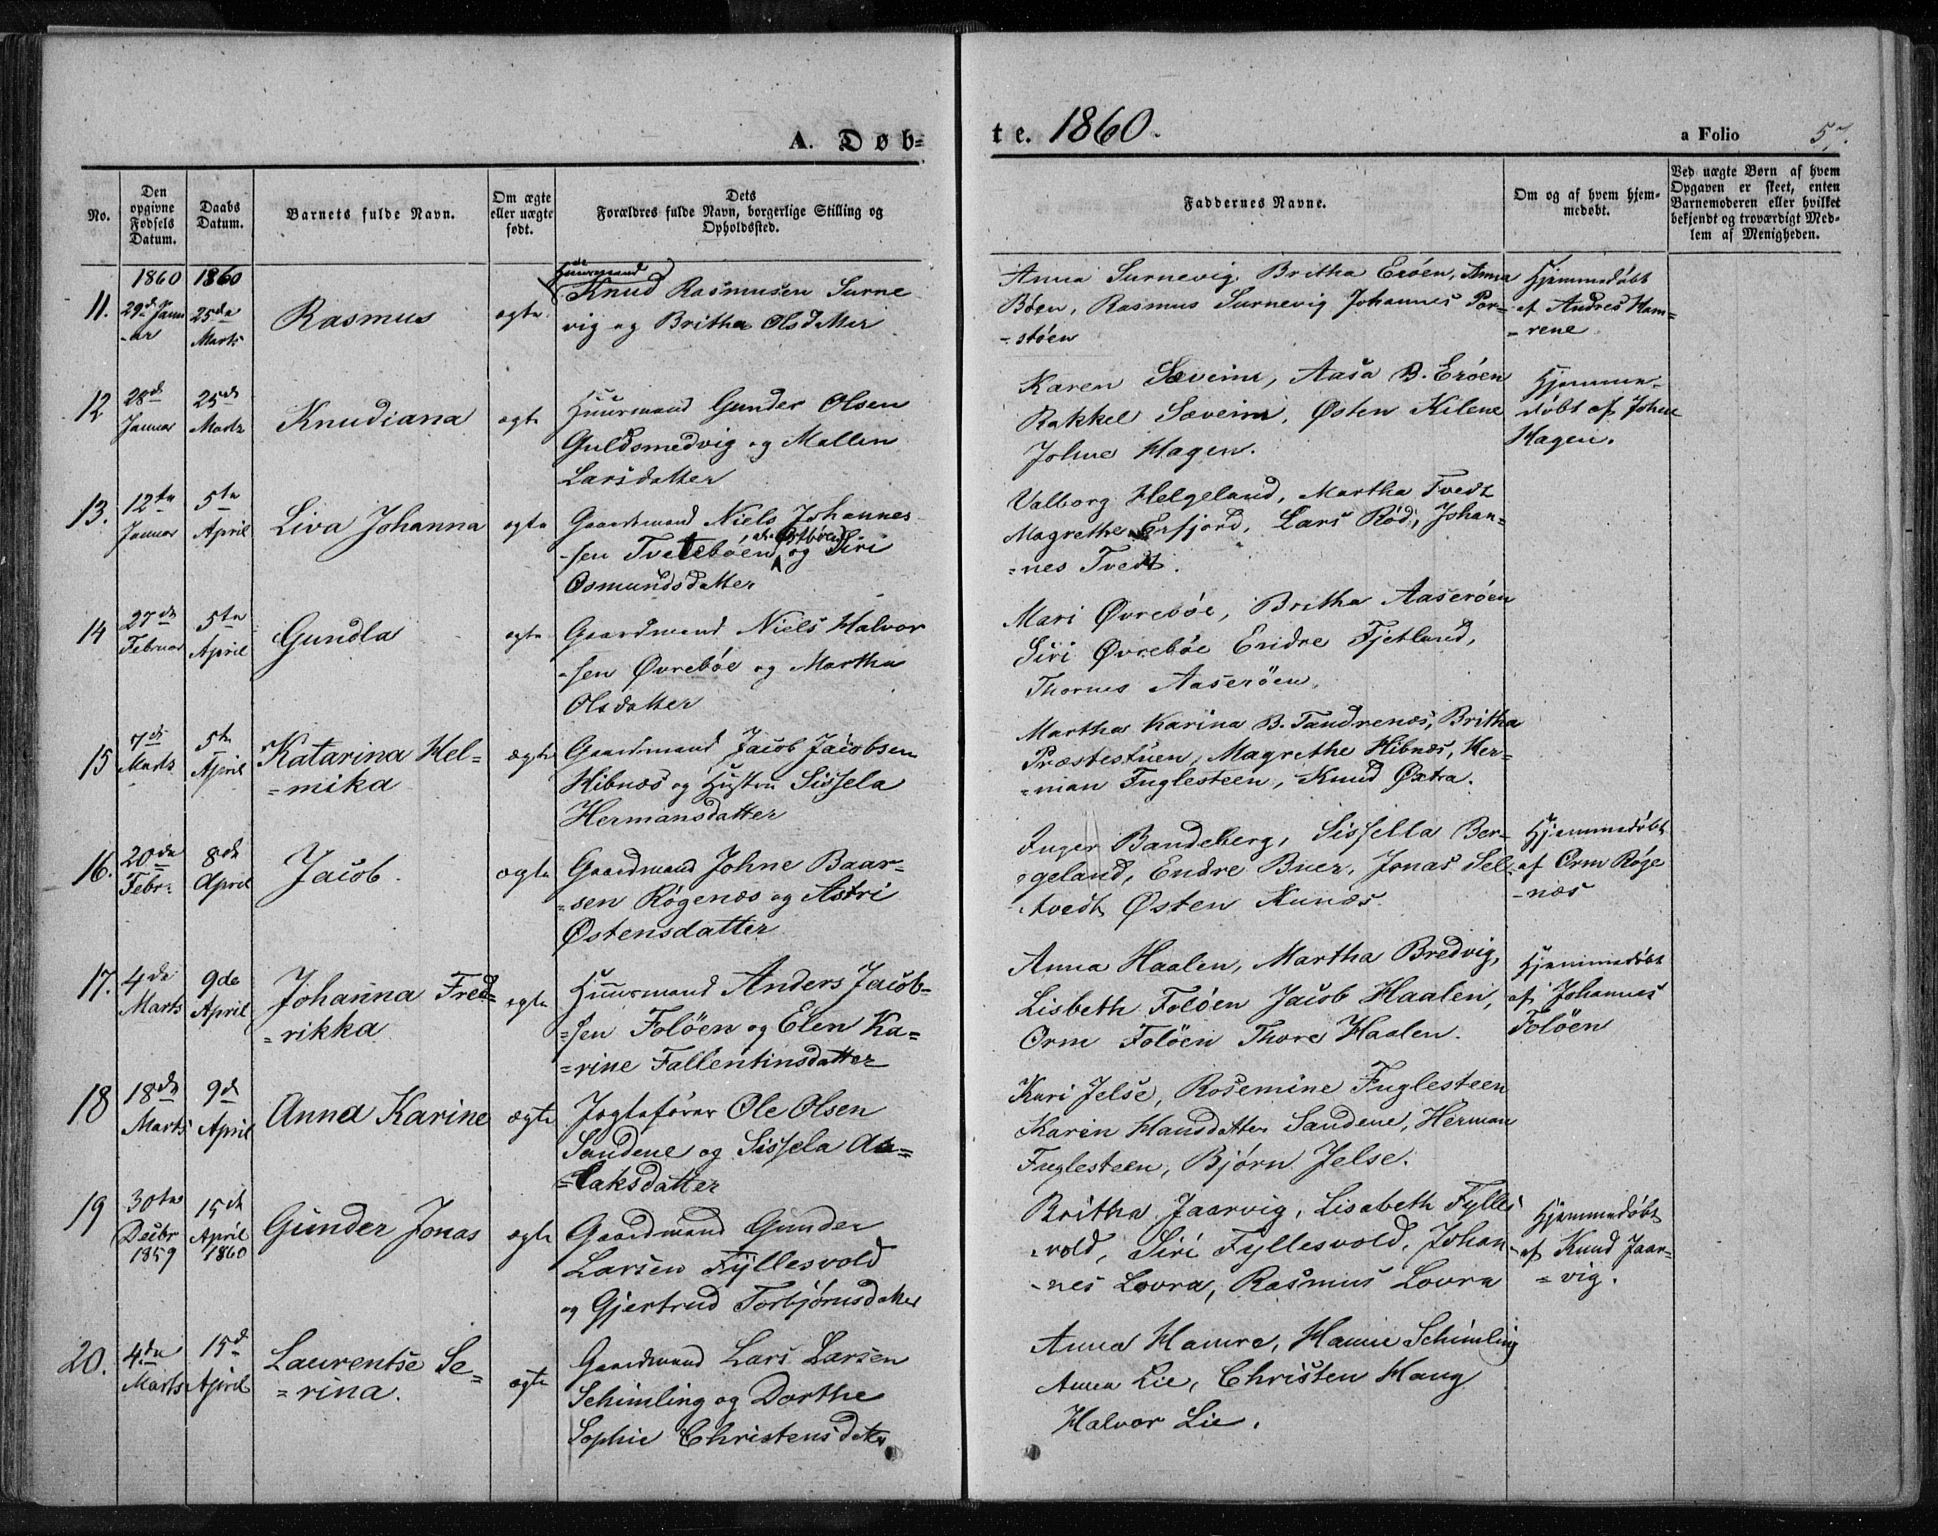 A. Døb-
te. 1860.
a Folio 57.
No.
Den opgivne Fødsels Datum.
Daabs Datum.
Barnets fulde Navn.
Om ægte eller uægte født.
Dets Forældres fulde Navn, borgerlige Stilling og Opholdssted.
Faddernes Navne.
Om og af hvem hjem-
medøbt.
Ved uægte Børn af hvem
Opgaven er skeet, enten
Barnemoderen eller hvilket
bekjendt og troværdigt Med-
lem af Menigheden.
1860 1860
11. 29de Janu
-ar
25de
Marts
Rasmus
ægte
Huusmand
Knud Rasmusen Surne
vig og Britha Olsdatter
Anna Surnevig, Britha Erøen, Anna
Böen, Rasmus Surnevig Johannes Por-
-støen
Hjemmedøbt
af Andres Ham-
-rene
12 28de
Januar
25de
Marts
Knudiana
ægte
Huusmand Gunder Olsen
Guldsmedvig og Mallen
Larsdatter
Karen Sæveim, Aasa B. Erøen
Rakkel Sæveim, Østen Kilene
Johne Hagen.
Hjemme-
døbt af Johne
Hagen.
13. 12te
Januar
5te
April
Liva Johanna
ægte
Gaardmand Niels Johannes-
-sen Tvetebøen og Siri
Osmundsdatter
Valborg Helgeland, Martha Tvedt
Magrethe Erfjord, Lars Rød, Johan-
=nes Tvedt.
14 27de
Februar
5te
April
Gundla
ægte
Gaardmand Niels Halvor
-sen Øvrebøe og Martha
Olsdatter
Mari Øvrebøe, Britha Aaserøen
Siri Øvrebøe Endre Fjetland,
Thornes Aaserøen.
15 7de
Marts
5te
April
Katarina Hel-
=mika
ægte
Gaardmand Jacob Jacobsen
Hibnæs og Hustru Sissela
Hermansdatter
Martha Karina B. Tandrenæs, Britha
Præstestuen, Magrethe Hibnæs, Her-
=man Fuglesteen, Knud Øxtra.
16. 20de
Febr.
8de
April
Jacob.
ægte
Gaardmand Johne Baar-
-sen Røgenæs og Astri
Østensdatter
Inger Bandeberg, Sissella Ber-
-geland, Endre Buer, Jonas Sel-
-tvedt Østen Nunæs
Hjemmedøbt
af Orm Røge
-næs
17. 4de
Marts
9de
April
Johanna Fred-
=rikka
ægte
Huusmand Anders Jacob-
=sen Foløen og Elen Ka-
=rine Fallentinsdatter
Anna Haalen, Martha Bredvig,
Lisbeth Foløen Jacob Haalen,
Orm Foløen Thore Haalen.
Hjemmedøbt
af Johannes
Foløen
18 18de
Marts
9de
April
Anna Karine
ægte
Jogtefører Ole Olsen
Sandene og Sissela As-
=laksdatter
Kari Jelse, Rosemine Fuglesteen
Karin Hansdatter Sandene, Herman
Fuglesteen, Bjørn Jelse.
19 30te
Decbr
1859
15de
April
1860
Gunder Jonas
ægte
Gaardmand Gunder
Larsen Fyllesvold
og Gjertrud Torbjørnsdatter
Britha Jaarvig, Lisabeth Fylles
-vold, Siri Fyllesvold, Johan-
-nes Lovra, Rasmus Lovra
Hjemmedøbt
af Knud Jaar-
=vig.
20. 4de
Marts
15de
April
Laurentse Se-
=rina.
ægte
Gaardmand Lars Larsen
Schimling og Dorthe
Sophie Christensdatter
Anna Hamre, Hanne Schimling
Anna Lie, Christen Haug
Halvor Lie.